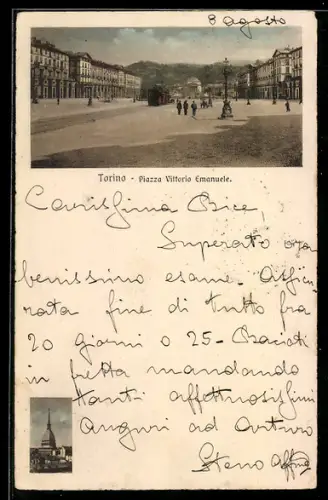 8 agosto
Torino - Piazza Vittorio Emanuele.
Carissima Bice,
Superato ora
benissimo esame. Assicu
rata fine di tutto fra
20 giorni o 25 - Baciati
in fretta mandando
tanti affettuosissimi
auguri ad Arturo
Steno affmo